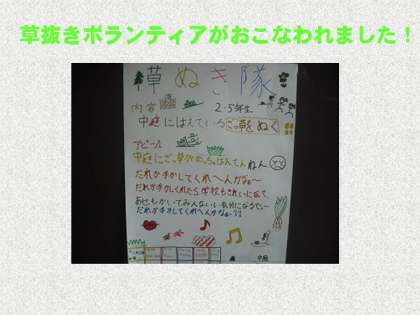 草抜きボランティアがおこなわれました！
草ぬき隊
内容
2・5年生
中庭にはえている草をぬく
アピール
中庭にご、草がめっちゃはえてんねん
だれか手かしてくれへんかなぁ〜
だれか手かしてくれたら学校もきれいになって、
あせもかいてみんないい気分になるで〜
だれか手かしてくれへんかなぁ??
中庭